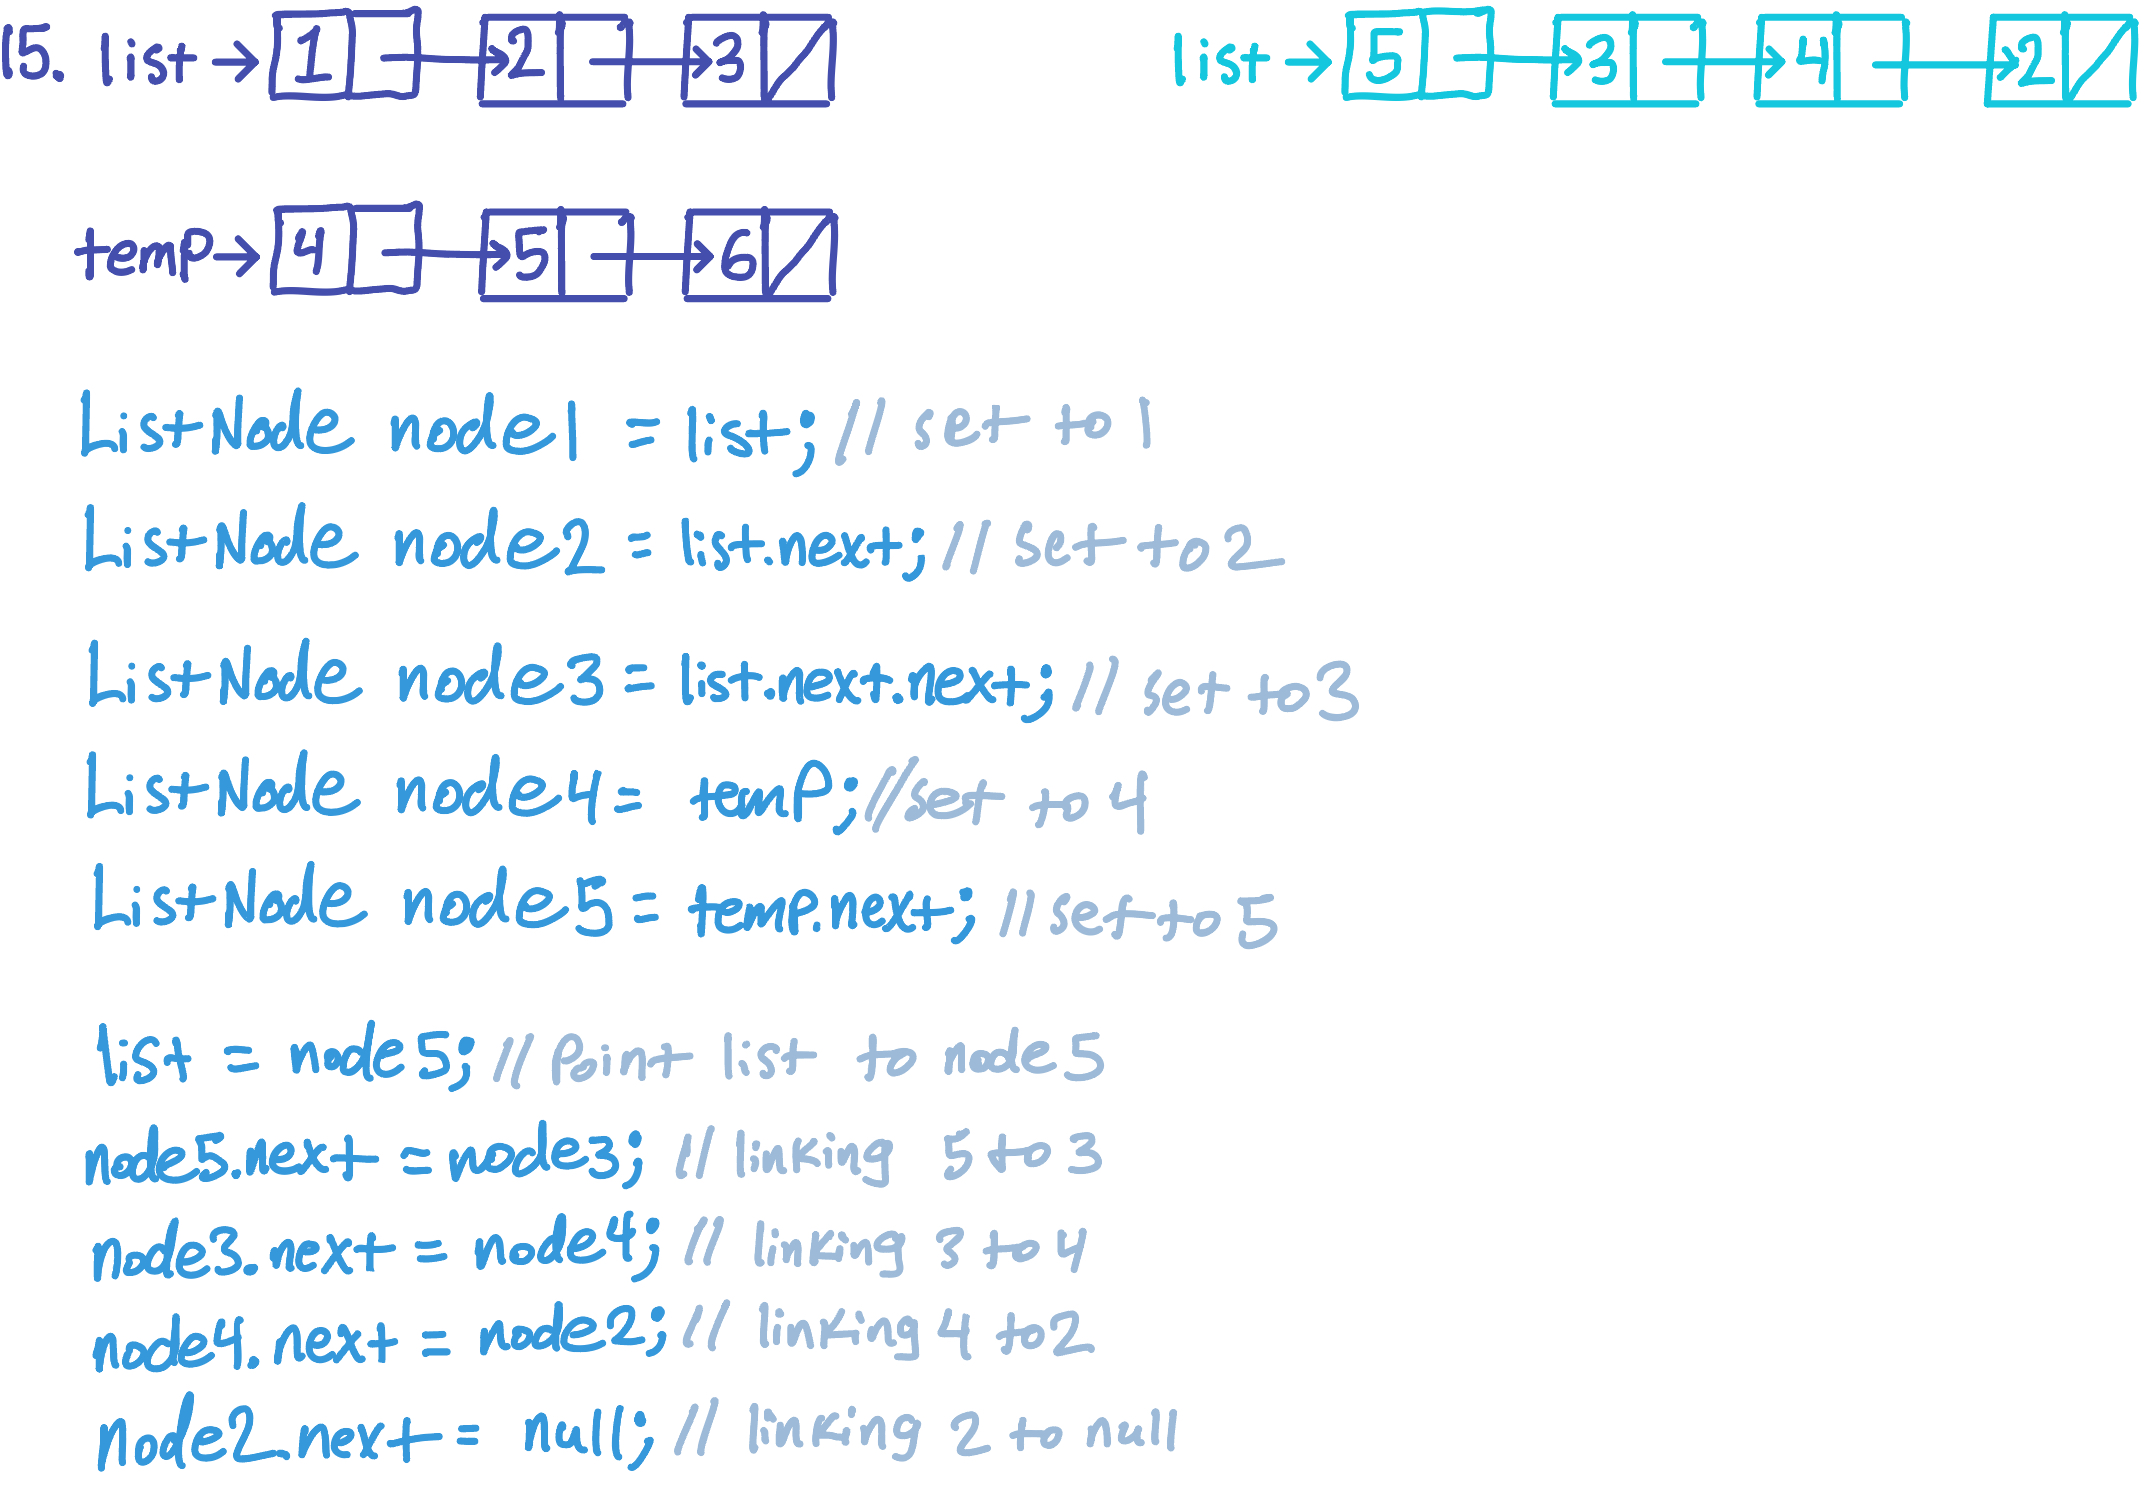 15. list → 1 → 2 → 3
list → 5 → 3 → 4 → 2
temp → 4 → 5 → 6
ListNode node1 = list; // set to 1
ListNode node2 = list.next; // set to 2
ListNode node3 = list.next.next; // set to 3
ListNode node4 = temp; // set to 4
ListNode node5 = temp.next; // set to 5
list = node5; // Point list to node5
node5.next = node3; // linking 5 to 3
node3.next = node4; // linking 3 to 4
node4.next = node2; // linking 4 to 2
node2.next = null; // linking 2 to null